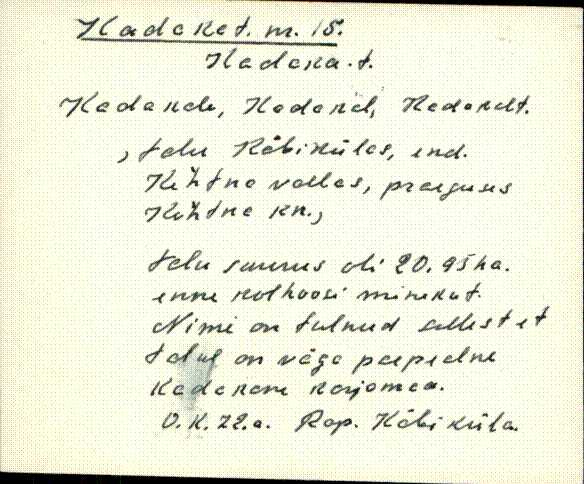 Kadaket. m. 15.
Kadaka. t.
Kadakale, Kadakal, Kadakalt.
, talu Käbikülas, end.
Kehtna vallas, praeguses
Kehtna kn.,
talu suurus oli 20.95 ha.
enne kolhoosi minekut.
Nimi on tulnud sellest et
talul on väga paepealne
Kadakane karjamaa.
O.K. 72.a. Rap. Käbiküla.